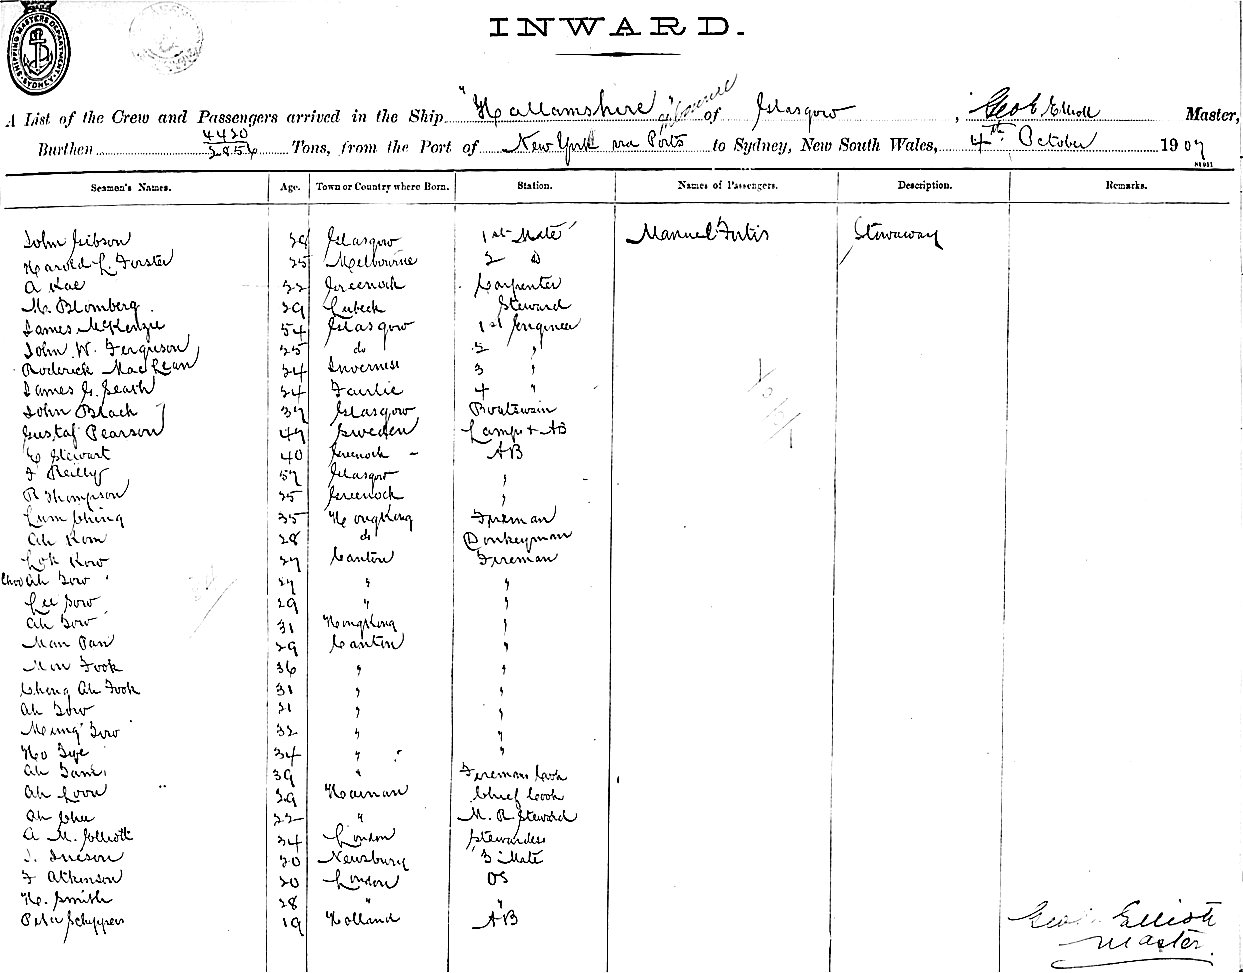 SHIPPING MASTERS DEPARTMENT SYDNEY
INWARD.
A List of the Crew and Passengers arrived in the Ship "Hallamshire" of Glasgow, Geo E Elliott Master,
Burthen 4420/2856 Tons, from the Port of New York via Ports to Sydney, New South Wales, 4th October 1907
Seamen's Names. Age. Town or Country where Born. Station. Names of Passengers. Description. Remarks.
John Gibson Glasgow 1st Mate Manuel Fortis Stowaway
Harold L. Forster 25 Melbourne 2 do
A Rae 32 Greenock Carpenter
M. Blomberg 29 Lubeck Steward
James McKenzie 54 Glasgow 1st Engineer
John W. Ferguson 25 do 2 "
Roderick MacLean 24 Inverness 3 "
James G. 24 Fairlie 4 "
John Black 37 Glasgow Boatswain
Gustaf Pearson 47 Sweden Lamps + AB
C Stewart 40 Greenock AB
F Reilly 57 Glasgow "
R Thompson 25 Greenock "
Lum Ching 35 HongKong Fireman
Ah Kom 28 do Donkeyman
Lok Kow 27 Canton Fireman
Choo Ah Sow 27 " "
Lee Sow 29 " "
Ah Sow 31 HongKong "
Man Pan 29 Canton "
Mon Fook 36 " "
Cheng Ah Fook 31 " "
Ah Sow 31 " "
Meng Sow 32 " "
Ho Sye 34 " "
Ah 39 " Firemans Cook
Ah Loon 29 Hainan Chief Cook
Ah Chu 22 " M. R. Steward
A M. Elliott 34 London Stewardess
J. 20 Newsbury 3 Mate
F Atkinson 20 London OS
H. Smith 28 " "
Peter Schippers 19 Holland AB
Geo Elliott
Master.